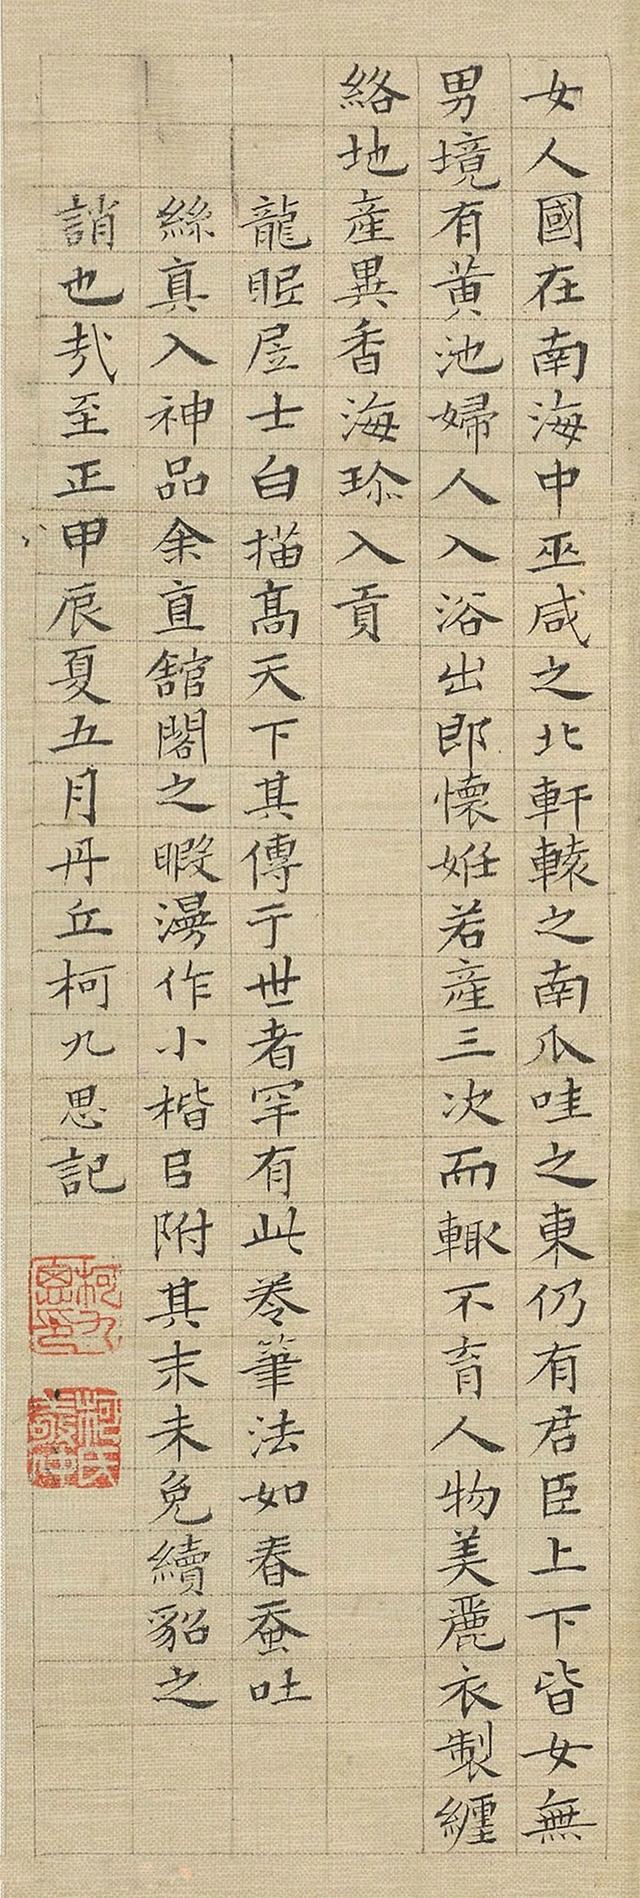 女人國在南海中巫咸之北軒轅之南爪哇之東仍有君臣上下皆女無
男境有黃池婦人入浴出即懷姙若產三次而輙不育人物美麗衣製纏
絡地產異香海珎入貢
龍眠居士白描高天下其傳于世者罕有此卷筆法如春蚕吐
絲真入神品余直舘閣之暇漫作小楷㠯附其末未免續貂之
誚也㢤至正甲辰夏五月丹丘柯九思記
柯九思印
柯氏敬仲